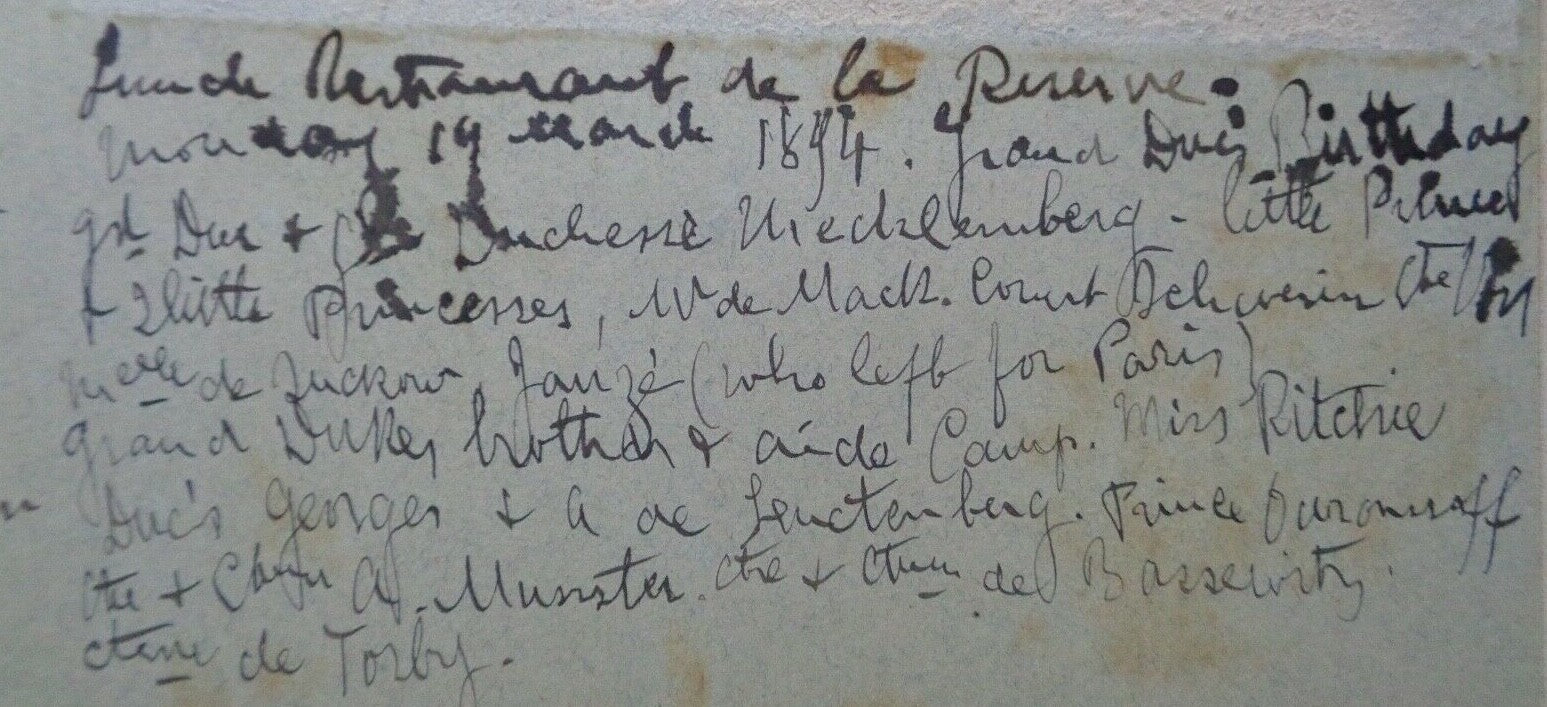 Lunch Restaurant de la Reserve.
Monday 19 March 1894. Grand Duc's Birthday
gd Duc & Duchesse Mecklemberg - little Prince
& 2 little Princesses, Mr de Mack. Count Schwerin Cte
Melle de Zuckow, Janzé (who left for Paris)
Grand Dukes brother & aide Camp. Miss Ritchie
Duc's Georges & A de Leuctenberg. Prince
Cte & A. Munster. Cte & Ctesse de Bassewitz.
Ctesse de Torby.